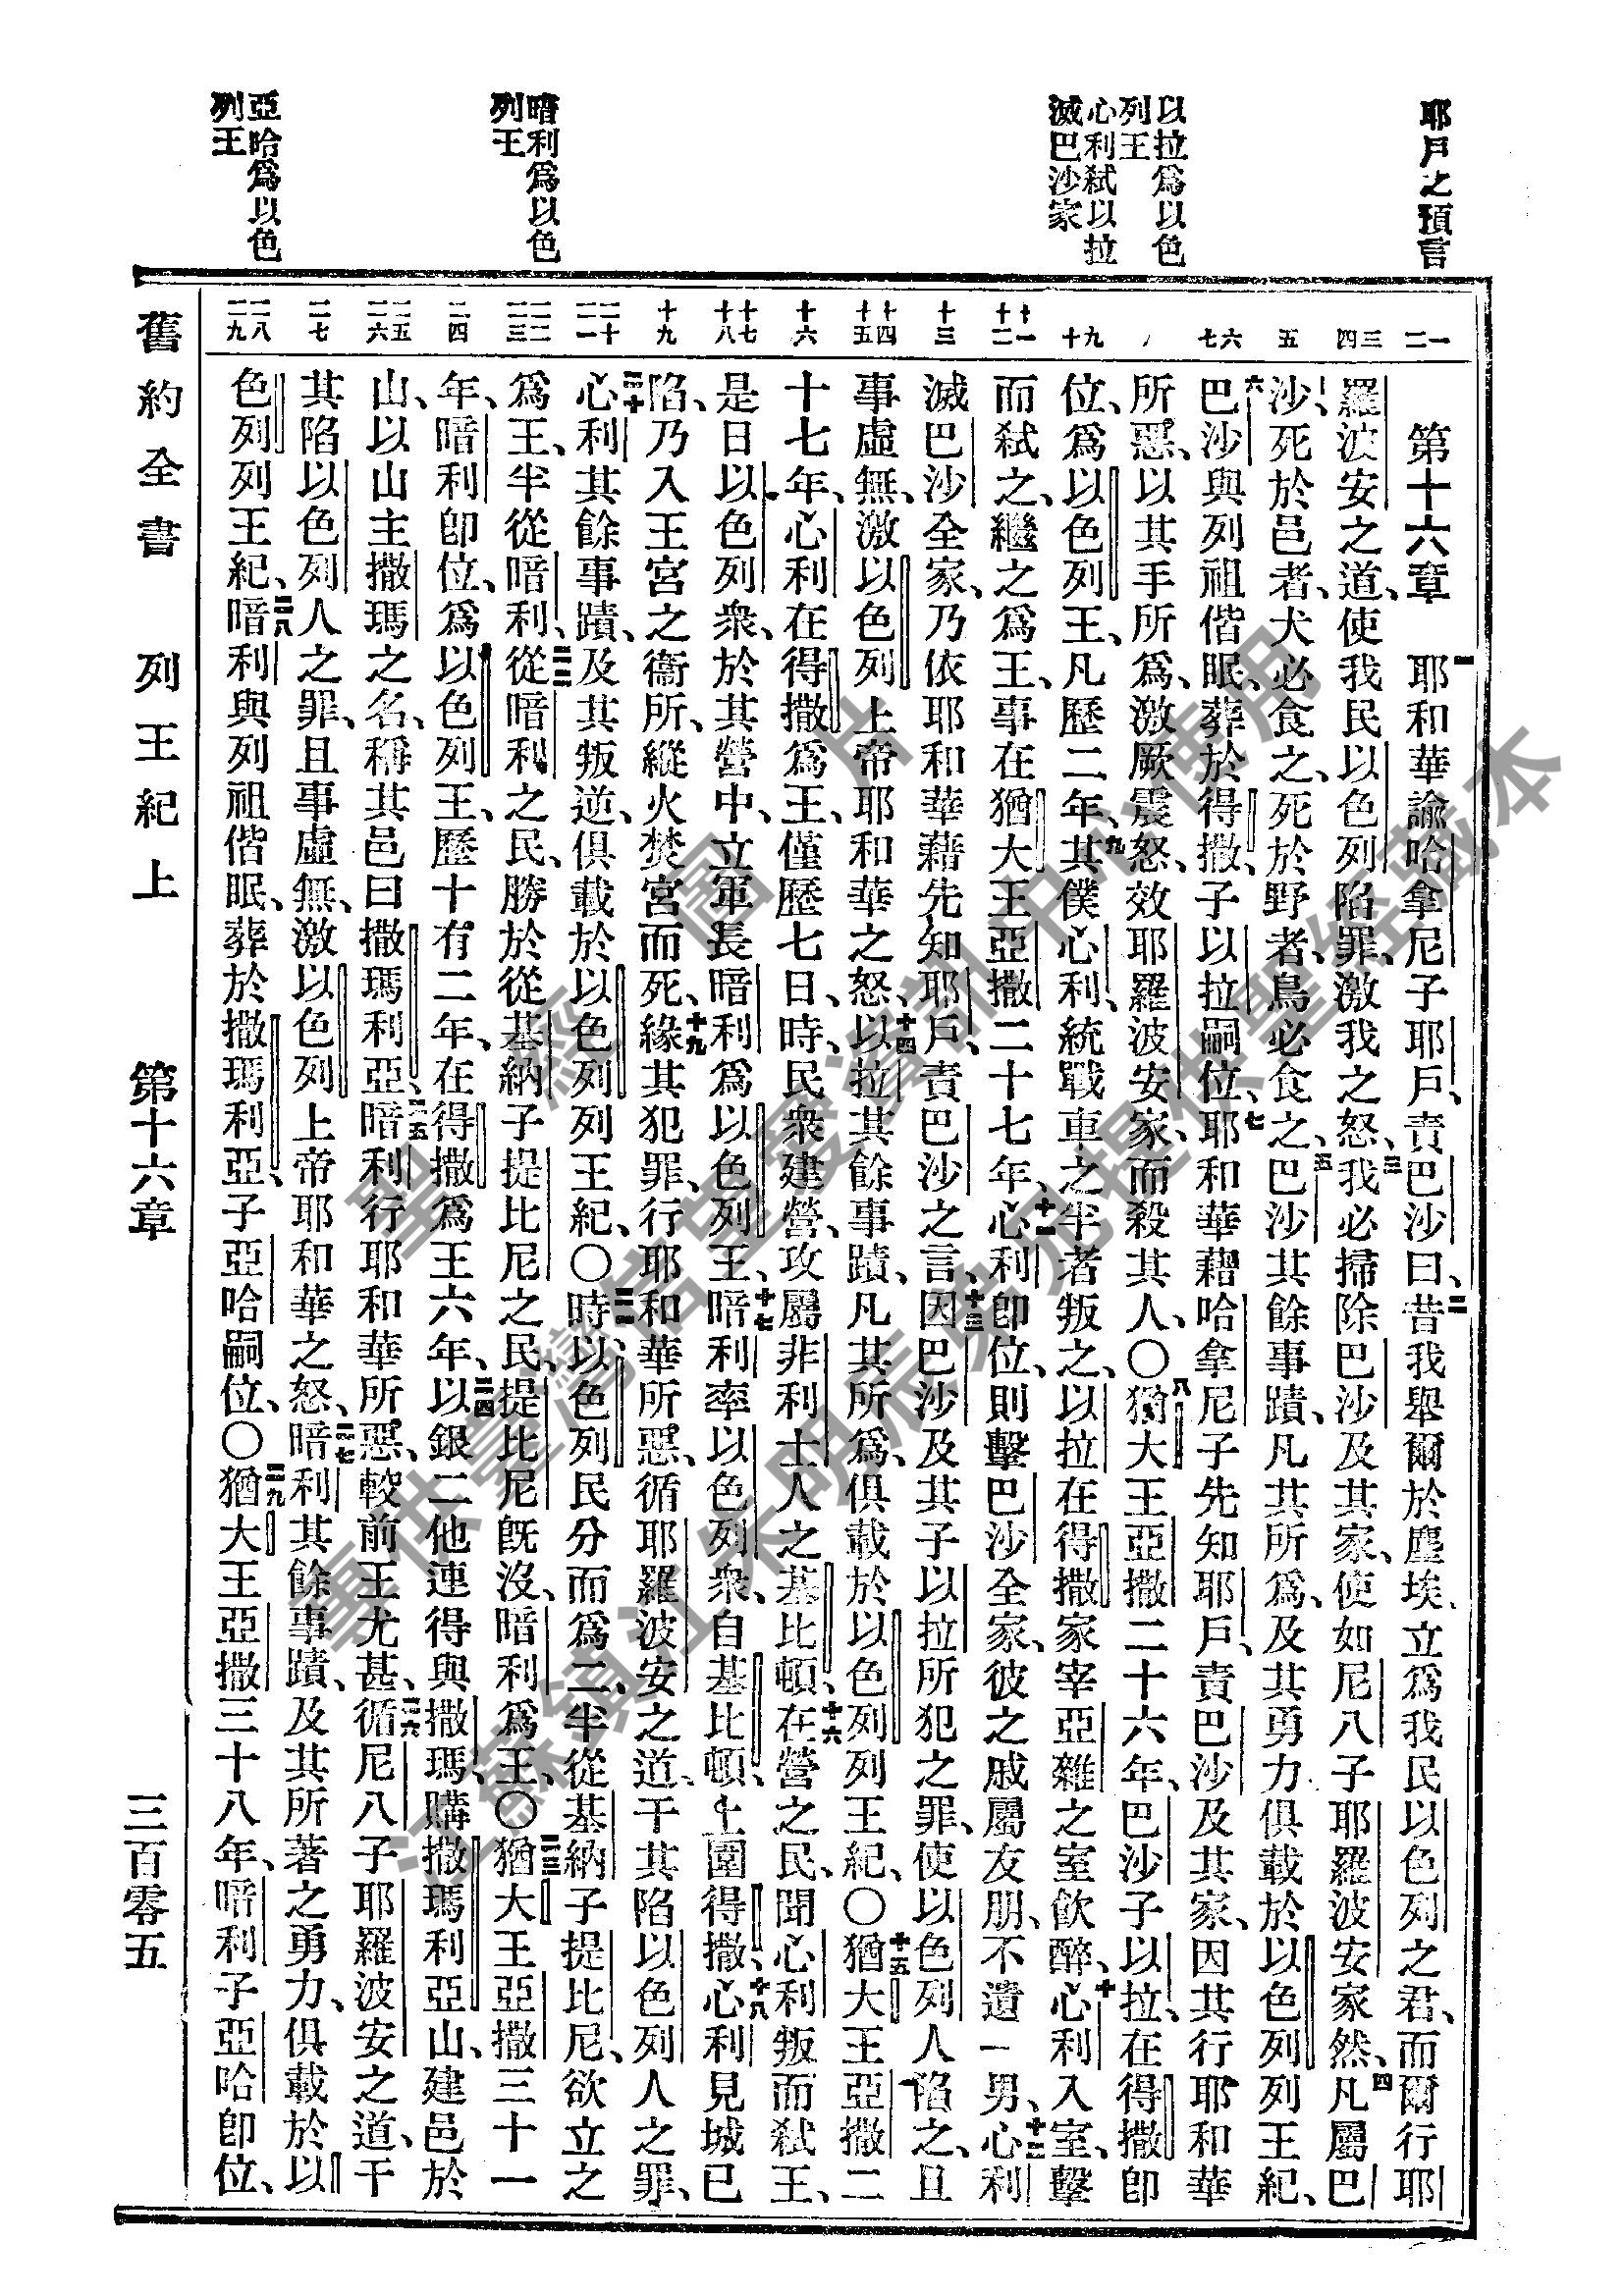 耶戶之預言
以拉爲以色
列王
心利弒以拉
滅巴沙家
暗利爲以色
列王
亞哈爲以色
列王
一二
三四
五
六七
八
九十
十一十二
十三
十四十五
十六
十七十八
十九
二十二一
二二二三
二四
二五二六
二七
二八二九
第十六章 一耶和華諭哈拿尼子耶戶、責巴沙曰、二昔我舉爾於塵埃、立爲我民以色列之君、而爾行耶
羅波安之道、使我民以色列陷罪、激我之怒、三我必掃除巴沙及其家、使如尼八子耶羅波安家然、四凡屬巴
沙、死於邑者、犬必食之、死於野者、鳥必食之、五巴沙其餘事蹟、凡其所爲、及其勇力、俱載於以色列列王紀、
六巴沙與列祖偕眠、葬於得撒、子以拉嗣位、七耶和華藉哈拿尼子先知耶戶、責巴沙及其家、因其行耶和華
所惡、以其手所爲、激厥震怒、效耶羅波安家、而殺其人、〇八猶大王亞撒二十六年、巴沙子以拉、在得撒卽
位、爲以色列王、凡歷二年、九其僕心利、統戰車之半者叛之、以拉在得撒家宰亞雜之室飲醉、十心利入室、擊
而弒之、繼之爲王、事在猶大王亞撒二十七年、十一心利卽位、則擊巴沙全家、彼之戚屬友朋、不遺一男、十二心利
滅巴沙全家、乃依耶和華藉先知耶戶、責巴沙之言、十三因巴沙及其子以拉所犯之罪、使以色列人陷之、且
事虛無、激以色列上帝耶和華之怒、十四以拉其餘事蹟、凡其所爲、俱載於以色列列王紀、〇十五猶大王亞撒二
十七年、心利在得撒爲王、僅歷七日、時民衆建營、攻屬非利士人之基比頓、十六在營之民、聞心利叛而弒王、
是日以色列衆、於其營中、立軍長暗利爲以色列王、十七暗利率以色列衆、自基比頓、上圍得撒、十八心利見城已
陷、乃入王宮之衞所、縱火焚宮而死、十九緣其犯罪、行耶和華所惡、循耶羅波安之道、干其陷以色列人之罪、
二十心利其餘事蹟、及其叛逆、俱載於以色列列王紀、〇二一時、以色列民分而爲二、半從基納子提比尼、欲立之
爲王、半從暗利、二二從暗利之民、勝於從基納子提比尼之民、提比尼旣沒、暗利爲王、〇二三猶大王亞撒三十一
年、暗利卽位、爲以色列王、歷十有二年、在得撒爲王六年、二四以銀二他連得與撒瑪、購撒瑪利亞山、建邑於
山、以山主撒瑪之名、稱其邑曰撒瑪利亞、二五暗利行耶和華所惡、較前王尤甚、二六循尼八子耶羅波安之道、干
其陷以色列人之罪、且事虛無、激以色列上帝耶和華之怒、二七暗利其餘事蹟、及其所著之勇力、俱載於以
色列列王紀、二八暗利與列祖偕眠、葬於撒瑪利亞、子亞哈嗣位、〇二九猶大王亞撒三十八年、暗利子亞哈卽位、
舊約全書 列王紀上 第十六章 三百零五
聖經圖片
專供臺灣信望愛資訊中心使用
江蘇鎮江朱明辰弟兄提供聖經藏本